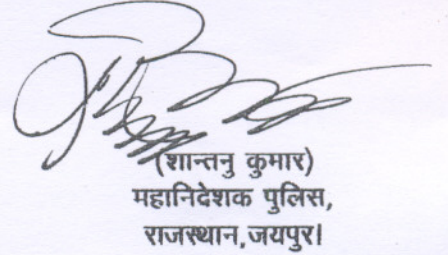 (शान्तनु कुमार)
महानिदेशक पुलिस,
राजस्थान,जयपुर।